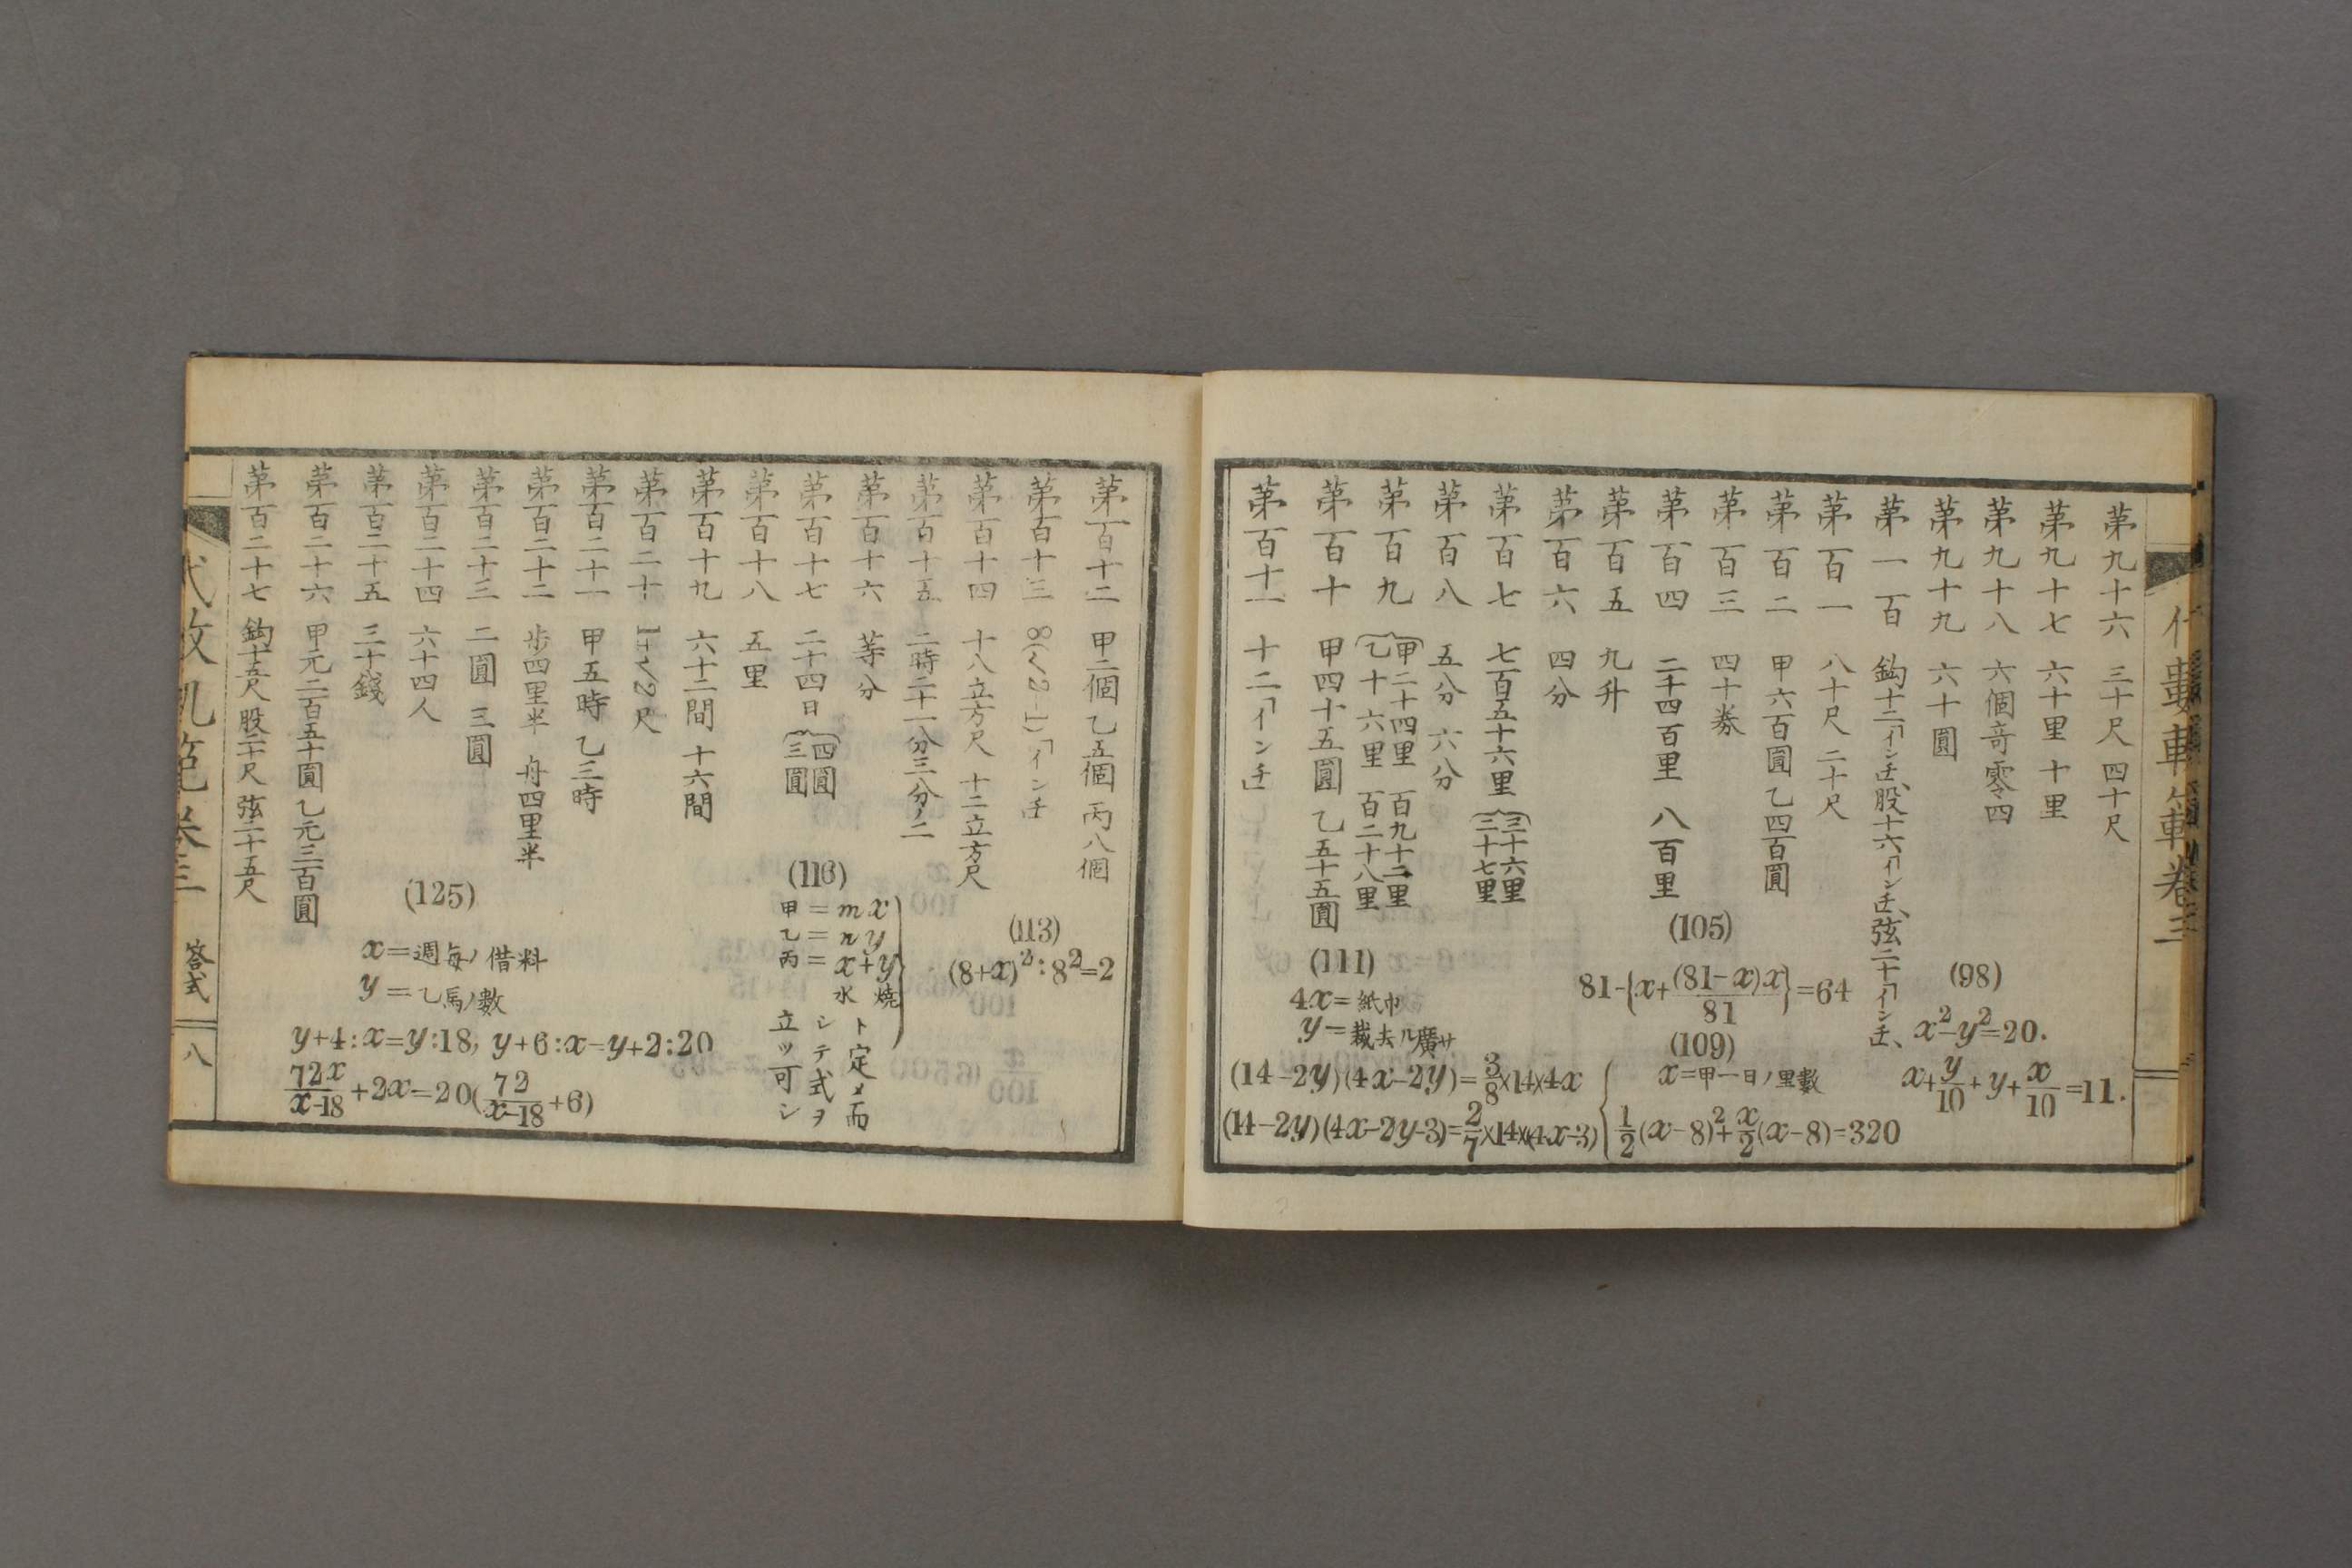 第九十六 三十尺 四十尺
第九十七 六十里 十里
第九十八 六個竒零四
第九十九 六十圓
第一百 鈎十二「インチ」、股十六「インチ」、弦二十「インチ」、
第百一 八十尺 二十尺
第百二 甲六百圓 乙四百圓
第百三 四十劵
第百四 二十四百里 八百里
第百五 九升
第百六 四分
第百七 七百五十六里 {三十六里 三十七里
第百八 五八分 六八分
第百九 {甲二十四里 百九十二里
乙十六里 百二十八里
第百十 甲四十五圓 乙五十五圓
第百十一 十二「インチ」
(98)
x²-y²=20.
x+y/10+y+x/10=11.
(105)
81-{x+(81-x)x/81}=64
(109)
x=甲一日ノ里數
1/2(x-8)²+x/2(x-8)=320
(111)
4x=紙巾
y=裁去ル廣サ
(14-2y)(4x-2y)=3/8×14×4x
(14-2y)(4x-2y-3)=2/7×14×(4x-3)
第百十二 甲二個 乙五個 丙八個
第百十三 8(√2-1)「インチ」
第百十四 十八立方尺 十二立方尺
第百十五 二時二十八分三分ノ二
第百十六 等分
第百十七 二十四日 {四圓 三圓
第百十八 五里
第百十九 六十二間 十六間
第百二十 1+√2尺
第百二十一 甲五時 乙三時
第百二十二 歩四里半 舟四里半
第百二十三 二圓 三圓
第百二十四 六十四人
第百二十五 三十錢
第百二十六 甲元二百五十圓 乙元三百圓
第百二十七 鈎十五尺 股二十尺 弦二十五尺
(113)
(8+x)²:8²=2
(116)
甲=mx
乙=ny
丙=x+y
水 燒
ト定メ而
シテ式ヲ
立ツ可シ
(125)
x=週毎ノ借料
y=乙馬ノ數
y+4:x=y:18, y+6:x=y+2:20
72x/x-18+2x=20(72/x-18+6)
答式
八